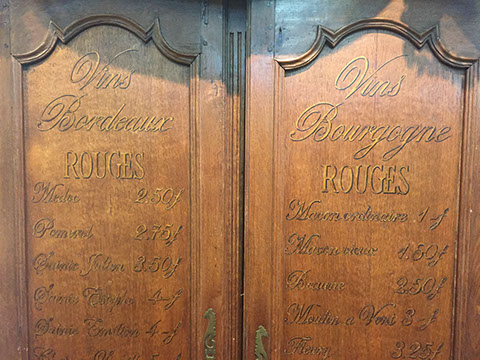 Vins
Bordeaux
ROUGES
Medoc 2.50f
Pomerol 2.75f
Sainte Julien 3.50f
Sainte Estephe 4-f
Sainte Emilion 4-f
Vins
Bourgogne
ROUGES
Macon ordinaire 1-f
Macon vieux 1.50f
Beaune 2.50f
Moulin a Vent 3-f
Fleury 3.25f